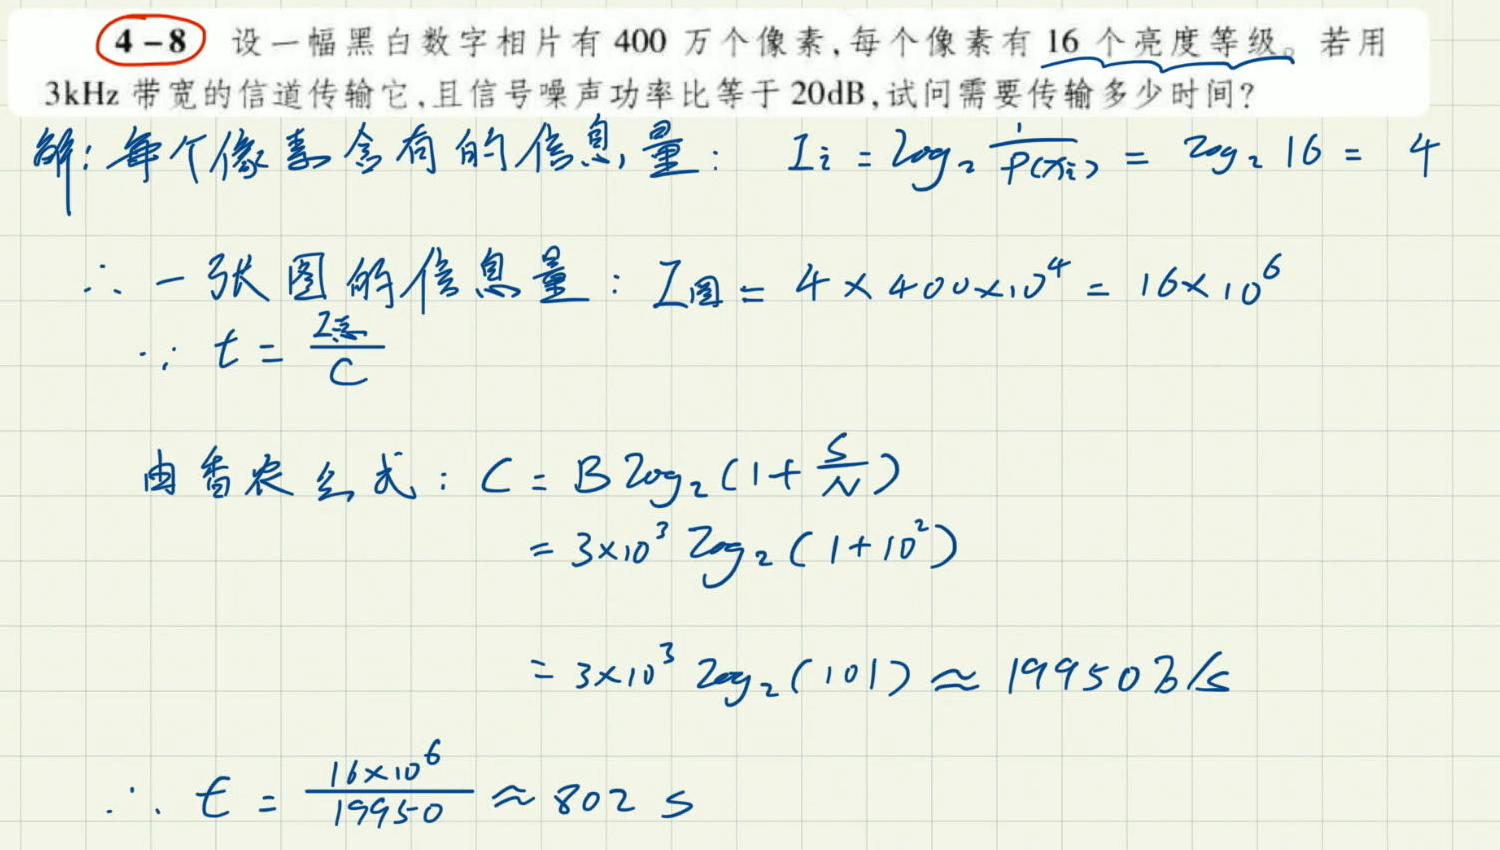 4-8 设一幅黑白数字相片有 400 万个像素,每个像素有 16 个亮度等级。若用
3kHz 带宽的信道传输它,且信号噪声功率比等于 20dB,试问需要传输多少时间?
解:每个像素含有的信息量: Iᵢ = log₂ 1/P(xᵢ) = log₂ 16 = 4
∴ 一张图的信息量: I图 = 4 × 400×10⁴ = 16×10⁶
∵ t = I总/C
由香农公式: C = B log₂(1+S/N)
= 3×10³ log₂(1+10²)
= 3×10³ log₂(101) ≈ 19950 b/s
∴ t = 16×10⁶/19950 ≈ 802 s